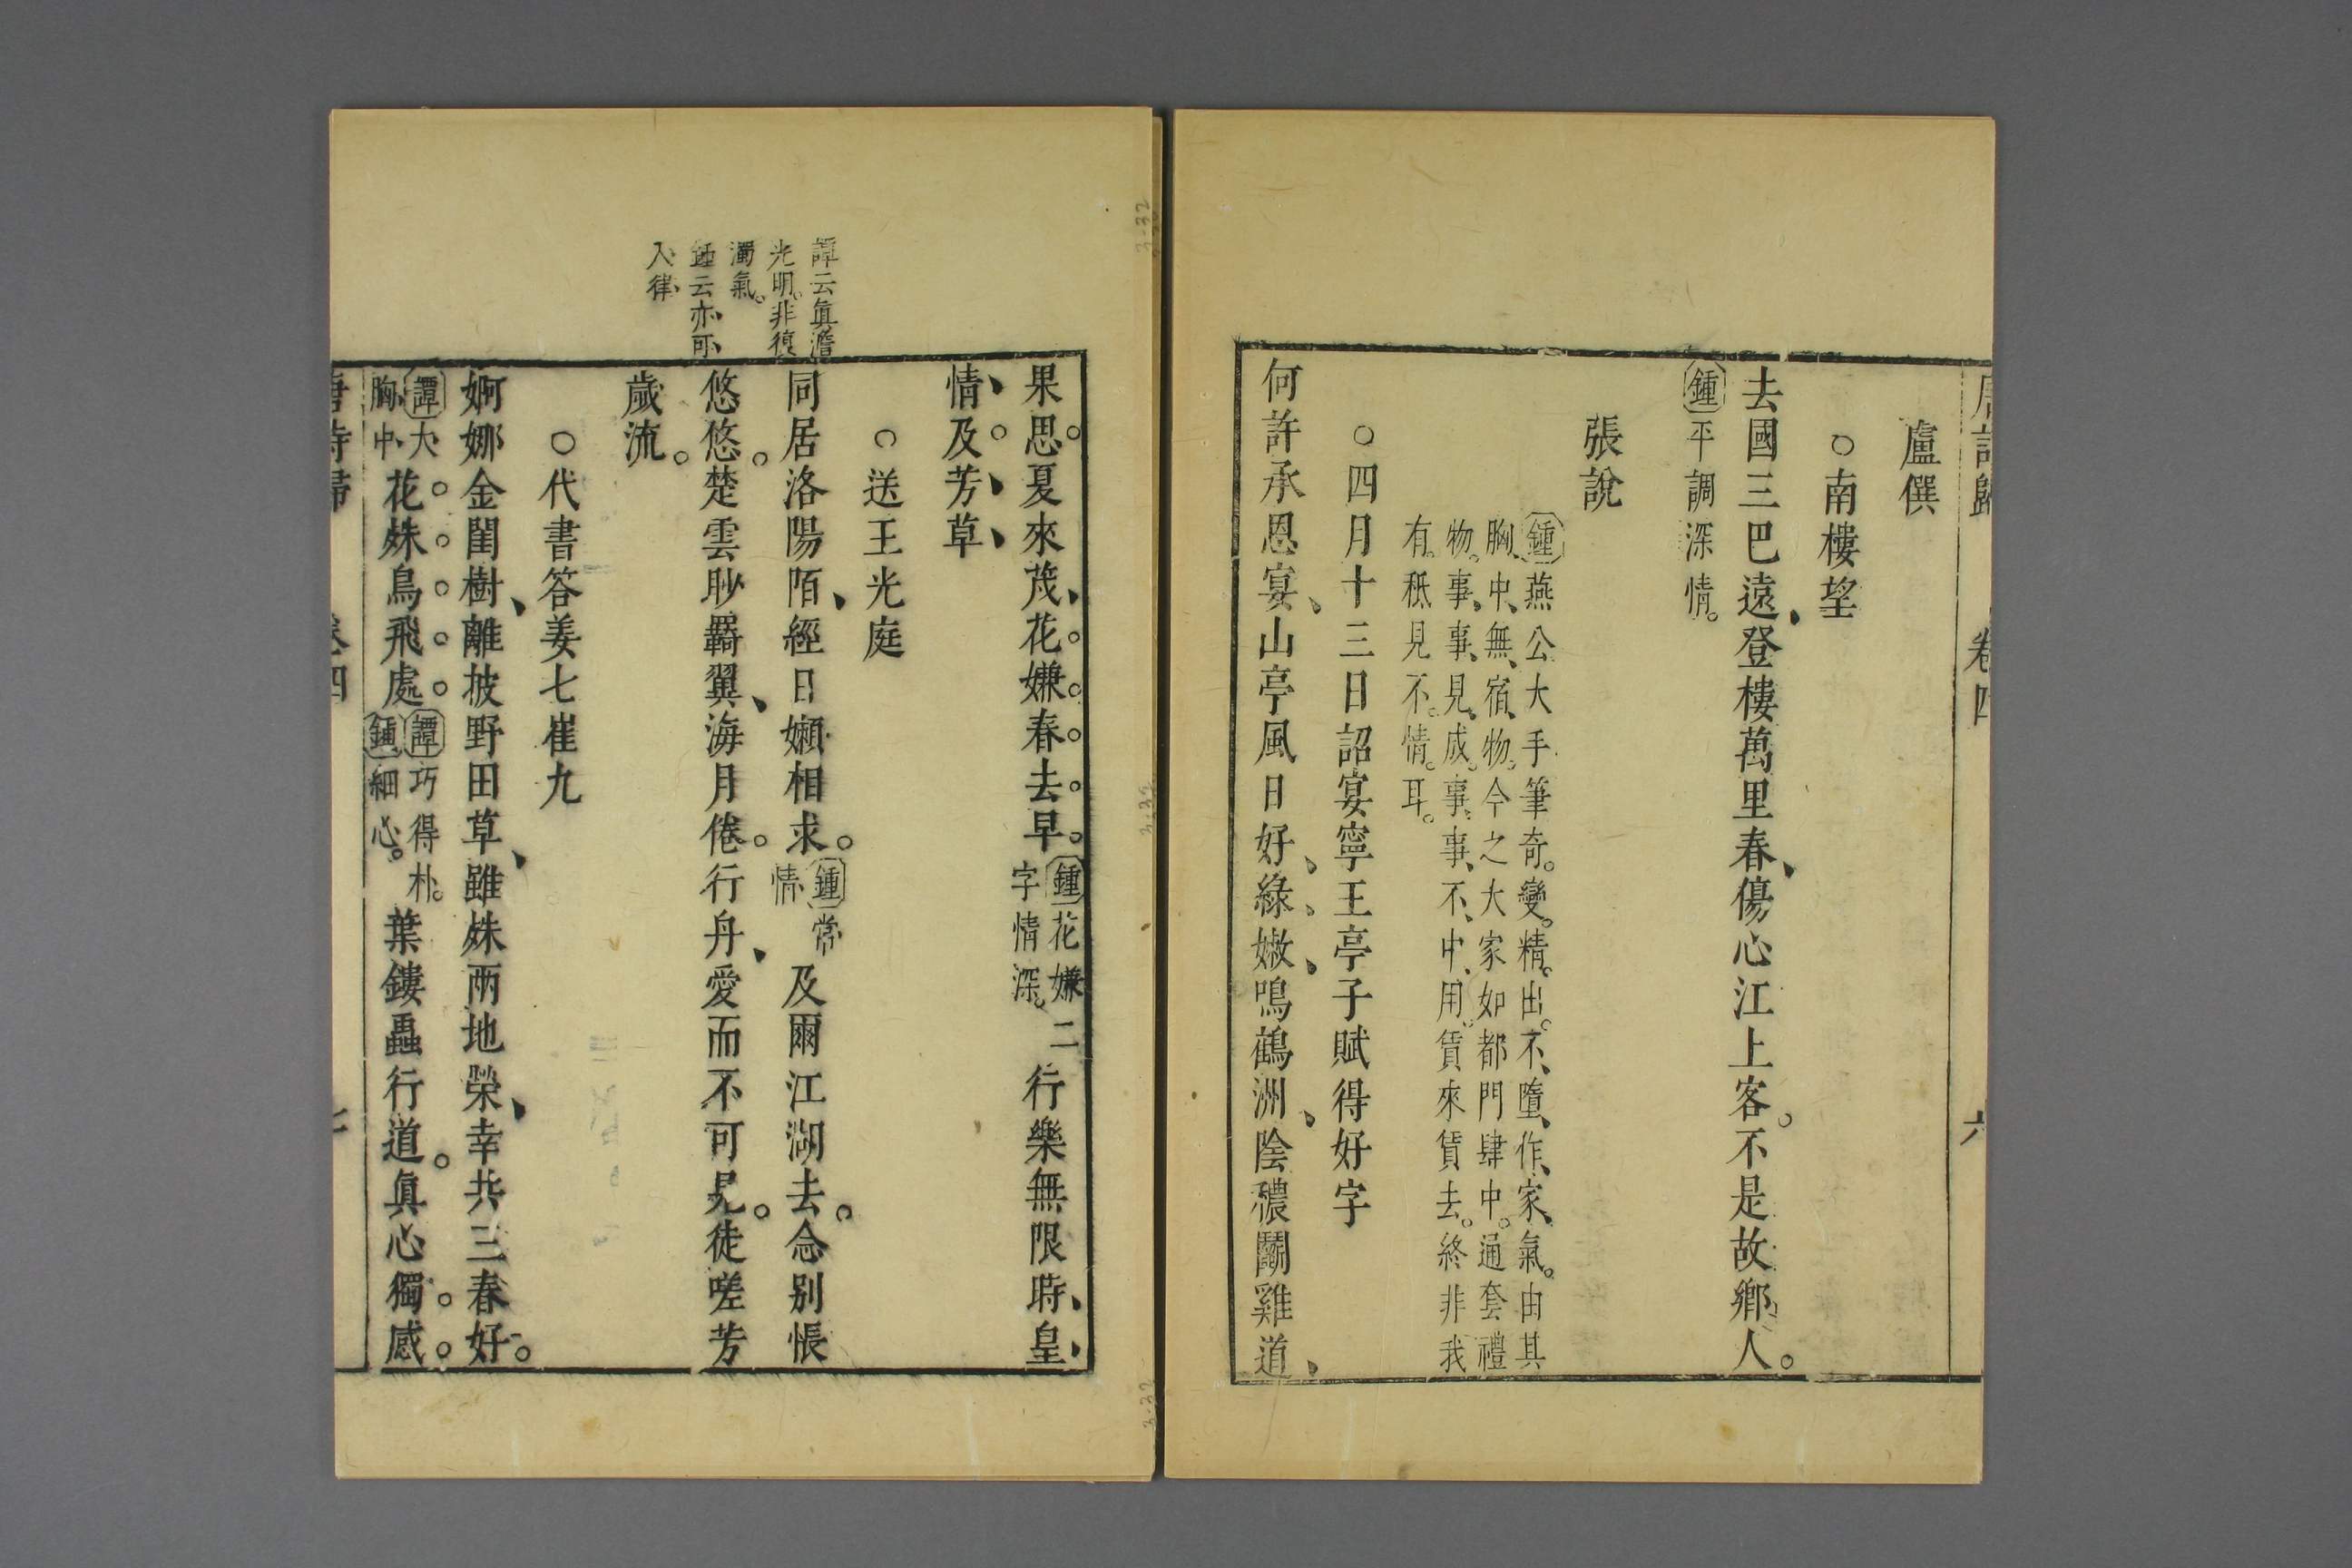 盧僎
○南樓望
去國三巴遠登樓萬里春傷心江上客不是故鄉人
鍾平調深情
張說
鍾燕公大手筆奇變精出不墮作家氣由其
胸中無宿物今之大家如都門肆中通套禮
物事事見成事事不中用賃來賃去終非我
有秪見不情耳
○四月十三日詔宴寧王亭子賦得好字
何許承恩宴山亭風日好綠嫩鳴鶴洲陰穠鬭雞道
果思夏來茂花嫌春去早鍾花嫌二字情深行樂無限時皇
情及芳草
○送王光庭
同居洛陽陌經日嬾相求鍾常情及爾江湖去念別悵
悠悠楚雲眇羈翼海月倦行舟愛而不可見徒嗟芳
歲流
譚云眞澹
光明非復
濁氣
鍾云亦可
入律
○代書答姜七崔九
婀娜金閨樹離披野田草雖姝兩地榮幸共三春好
譚大胸中花姝鳥飛處譚巧得朴鍾細心葉鏤蟲行道眞心獨感
唐詩歸 卷四 七